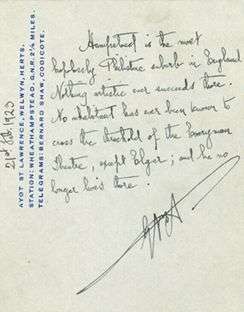 AYOT ST LAWRENCE, WELWYN, HERTS.
STATION: WHEATHAMPSTEAD, G.N.R. 2¼ MILES.
TELEGRAMS: BERNARD SHAW, CODICOTE.
1923
Hampstead is the most
hopelessly Philistine suburb in England
Nothing artistic ever succeeds there.
No inhabitant has ever been known to
cross the threshold of the Everyman
Theatre, except Elgar; and he no
longer lives there.